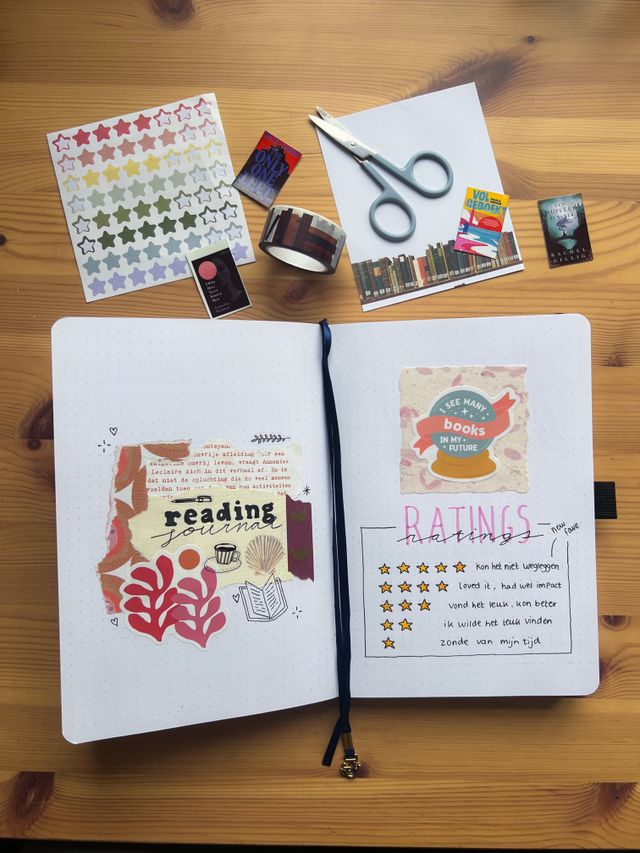 ONLY ONE
LEFT
VOL
GEBOEK
RACHEL
GILLIG
ontspan
onvrije afleiding
onvrij leven: vraagt Annemiek
Leclaire zich in dit verhaal af. Es is
dat niet de opluchting die zo veel mensen
voelden toen
van hun activiteiten
reading
journal
I SEE MANY
books
IN MY
FUTURE
RATINGS
ratings
new
fave
kon het niet wegleggen
loved it, had wel impact
vond het leuk, kon beter
ik wilde het leuk vinden
zonde van mijn tijd